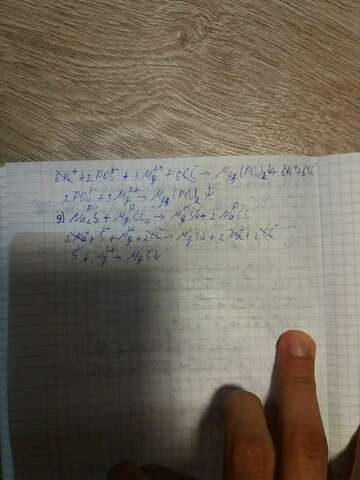 6K⁺+2PO₄³⁻+3Mg²⁺+6Cl⁻→Mg₃(PO₄)₂↓+6K⁺+6Cl⁻
2PO₄³⁻+3Mg²⁺→Mg₃(PO₄)₂↓
9) Na₂S+MgCl₂→MgS↓+2NaCl
2Na⁺+S²⁻+Mg²⁺+2Cl⁻→MgS↓+2Na⁺+2Cl⁻
S²⁻+Mg²⁺→MgS↓